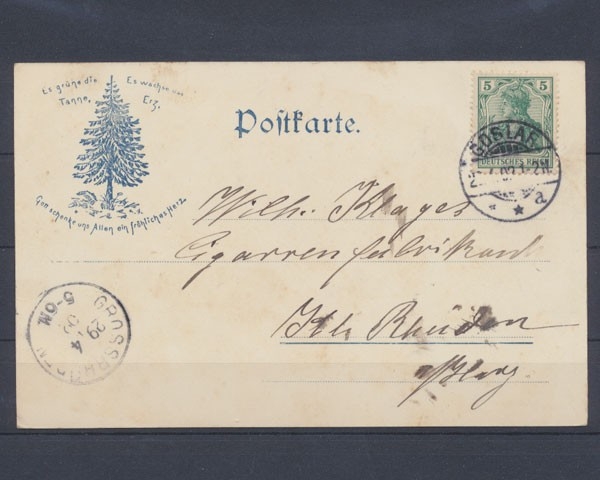 Es grüne die Tanne,
Es wachse das Erz,
Gott schenke uns Allen ein fröhliches Herz
Postkarte.
5 5
DEUTSCHES REICH
GOSLAR
* * a
Wilh. Klages
Cigarrenfabrikant
Rhüden
a/Harz
GROSSRHÜDEN
29
4
02
5-6N